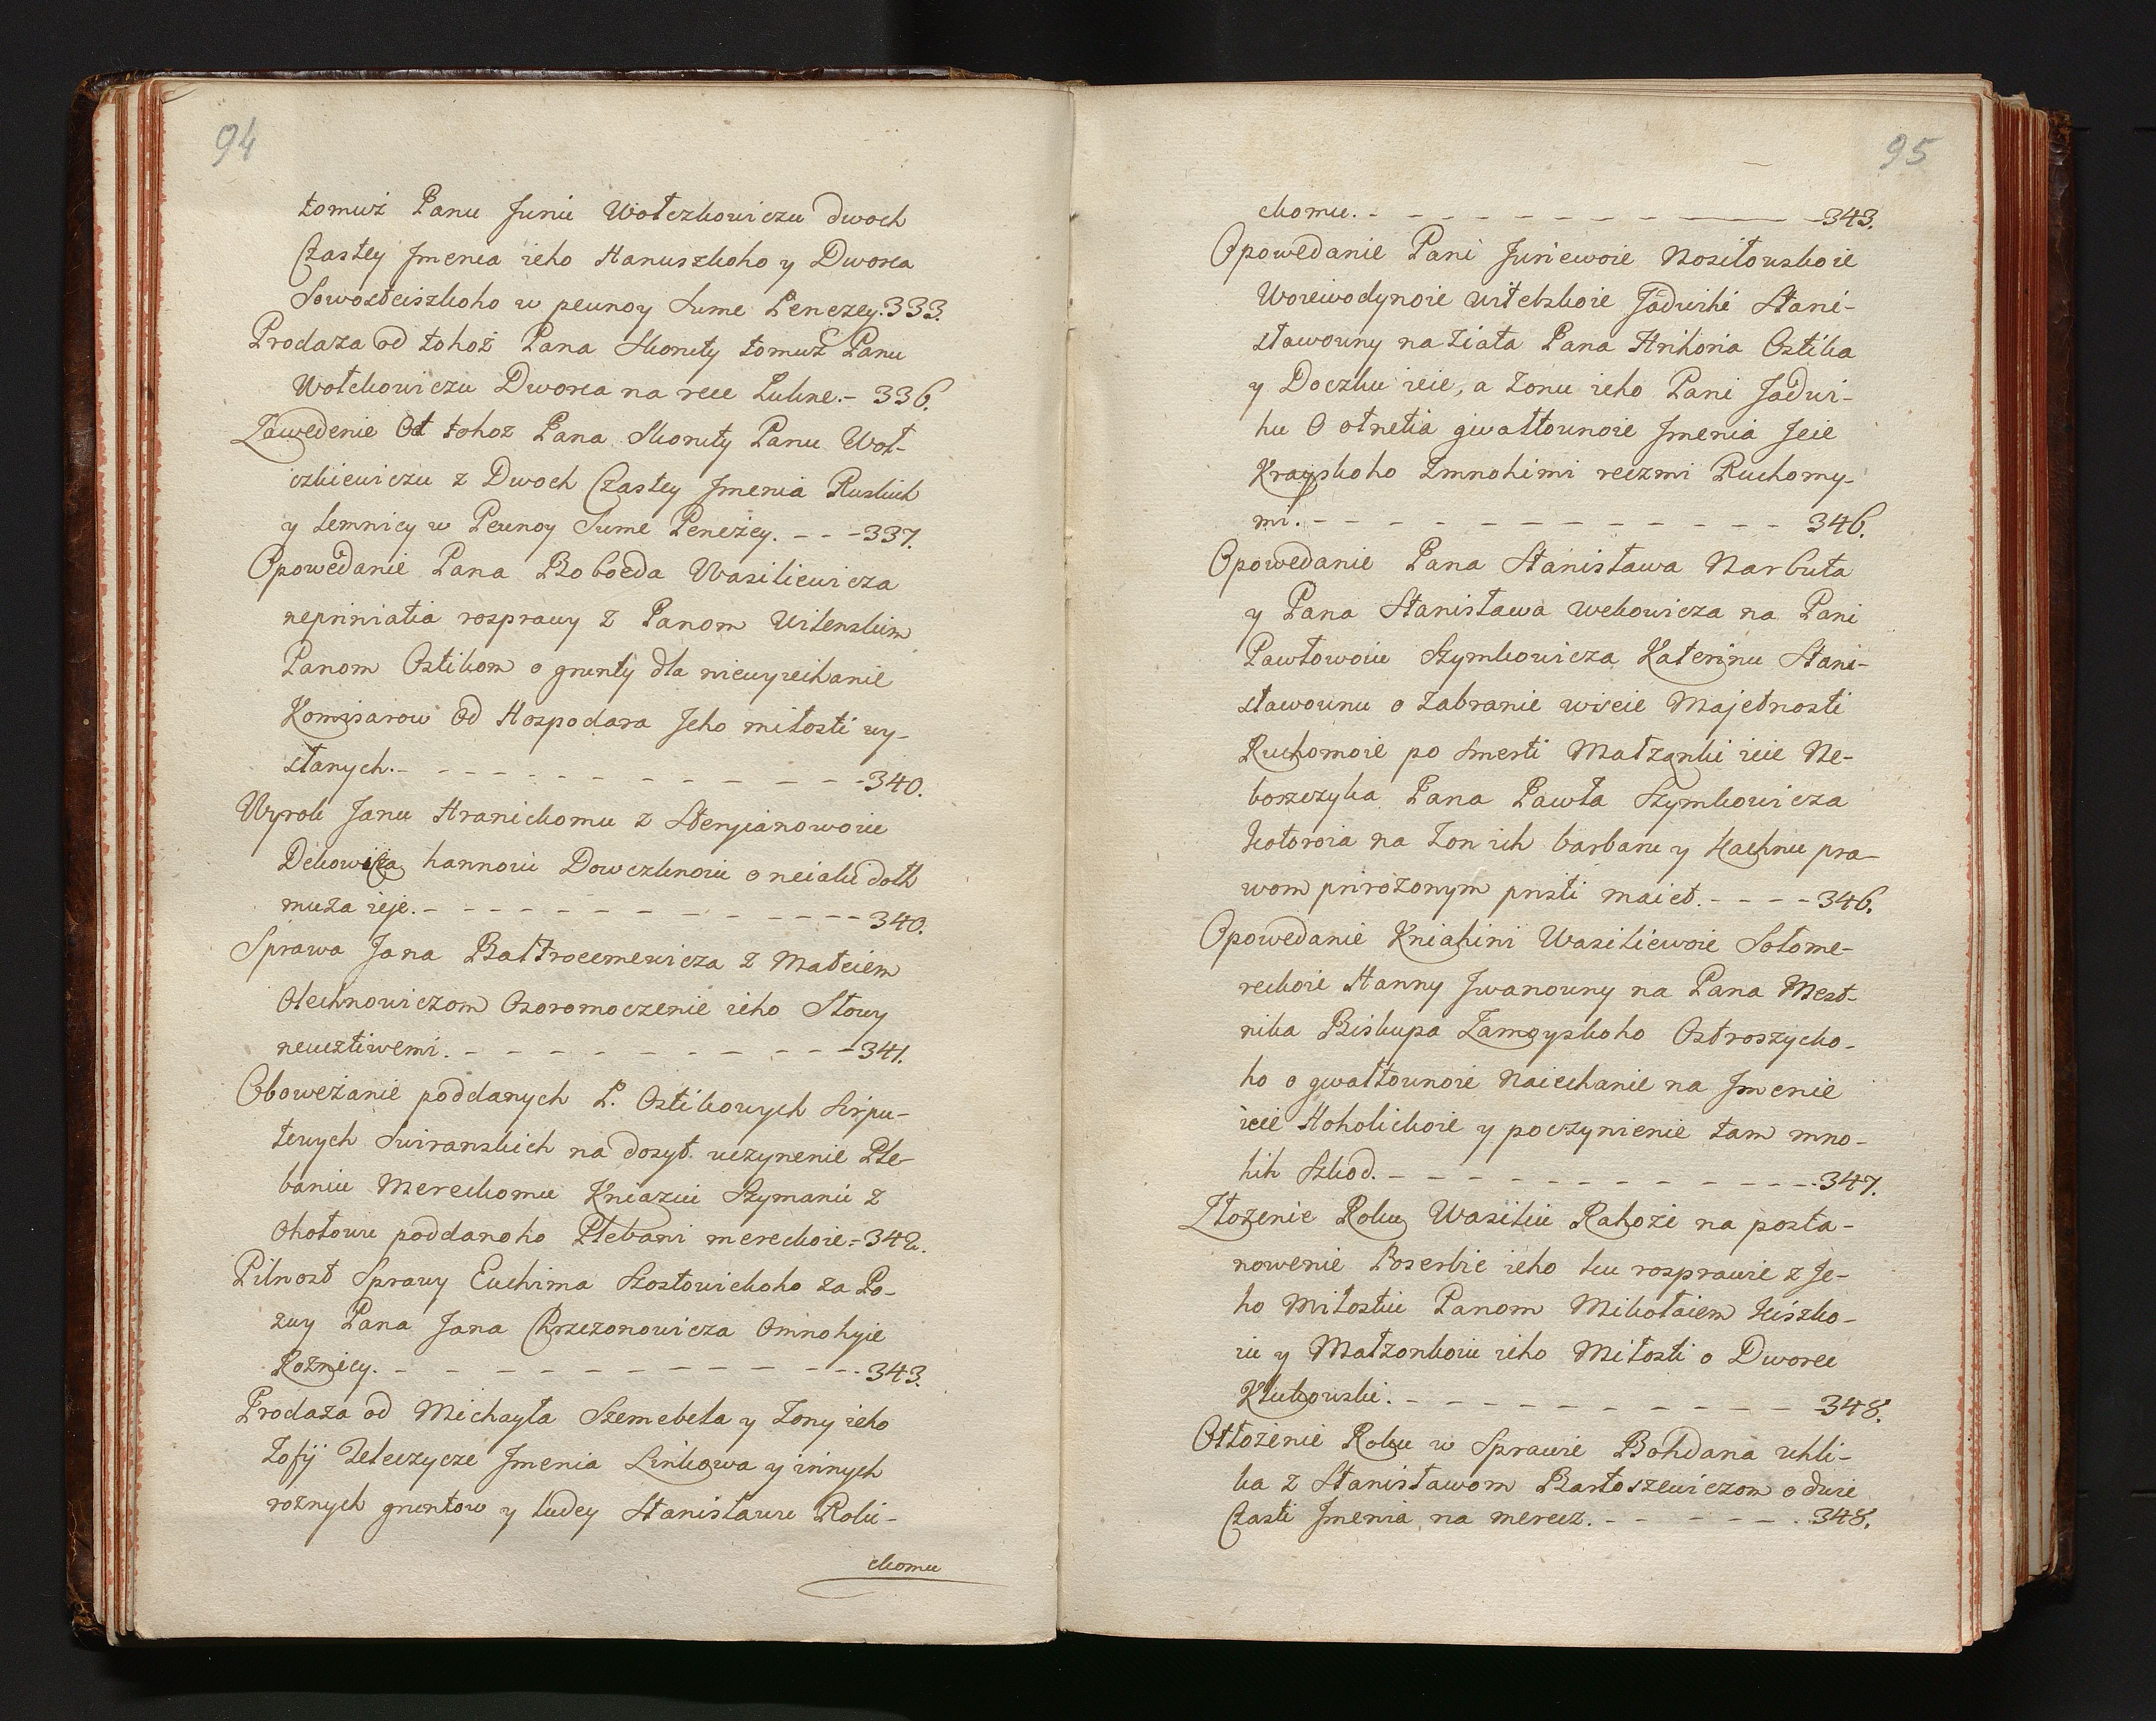 94
tomuż Panu Juriu Wołczkowiczu dwoch
Czastey Jmenia ieho Hanuszkoho y Dworca
w peunoy Sume Penezey. 333.
Prodaża od tohoż Pana Skoruty tomuż Panu
Wołckowiczu Dworca na rece Lukne. - 336.
Zawedenie Ot tohoż Pana Skoruty Panu Woł-
czkiewiczu z Dwoch Czastey Jmenia Ruskich
y Semnicy w Peunoy Sume Peneżey. - - - 337.
Opowedanie Pana Boboeda Wasiliewicza
nepriniatia rosprawy z Panom Wilenskim
Panom Ostikom o grunty dla niewyiechanie
Komisarow Od Hospodara Jeho miłosti wy-
słanych. - - - - - - - - - - - - 340.
Wyrok Janu Hranickomu z
hannoiu Dowczknoiu o neiaki dolh
muża ieje. - - - - - - - - - - - 340.
Sprawa Jana Bałtrocemewicza z Mateiem
Olechnowiczom Osoromoczenie ieho Słowy
neucztiwemi. - - - - - - - - - - 341.
Oboweżanie poddanych P. Ostikowych Sirpu-
tewych Swiranskich na dosyt uczynenie Ple-
baniu Mereckomu Kniaziu Szymaniu z
Ohołowu poddanoho Plebani mereckoie - 342.
Pilnost Sprawy Euchima Szostowickoho za Po-
zwy Pana Jana Chrzczonowicza Omnohyie
Roznicy. - - - - - - - - - - - - 343.
Prodaża od Michayła Szemebela y Żony ieho
Zofij Zeleczycze Jmenia Linkowa y innych
roznych gruntow y ludey Stanisławu Rolic-
ckomu
95
ckomu. - - - - - - - - - - - 343.
Opowedanie Pani Juriewoie Nosiłowskoie
Woiewodynoie witebskoie Jadwihi Stani-
sławowny na Ziatia Pana Hrihoria Ostika
y Doczku ieie, a Żonu ieho Pani Jadwi-
hu O otnetia gwałtownoie Jmenia Jeie
Krayskoho Zmnohimi reczmi Ruchomy-
mi. - - - - - - - - - - - - - 346.
Opowedanie Pana Stanisława Narbuta
y Pana Stanisława Wekowicza na Pani
Pawłowoiu Szymkowicza Katerinu Stani-
sławownu o zabranie wseie Majetnosti
Ruchomoie po Smerti Małzonki ieie Ne-
boszczyka Pana Pawła Szymkowicza
kotoroia na Żon ich barbaru y Hachnu pra-
wom prirożonym pristi maiet. - - - - 346.
Opowedanie Kniahini Wasiliewoie Sołome-
reckoie Hanny Jwanowny na Pana Mest-
nika Biskupa Zamoyskoho Ostroszycko-
ho o gwałtownoie Naiechanie na Jmenie
ieie Hoholickoie y poczynienie tam mno-
hih Szkod. - - - - - - - - - - - 347.
Złożenie Roku Wasiliu Rahoże na posta-
nowenie Boserbie ieho ku rosprawie z Je-
ho Miłostiu Panom Mikołaiem Kiszko-
iu y Małzonkoiu ieho Miłosti o Dworec
Klukowski. - - - - - - - - - - - 348.
Otłożenie Roku w Sprawie Bohdana Uhli-
ka z Stanisławom Bartoszewiczom o dwie
Czasti Jmenia na merecz. - - - - - - 348.